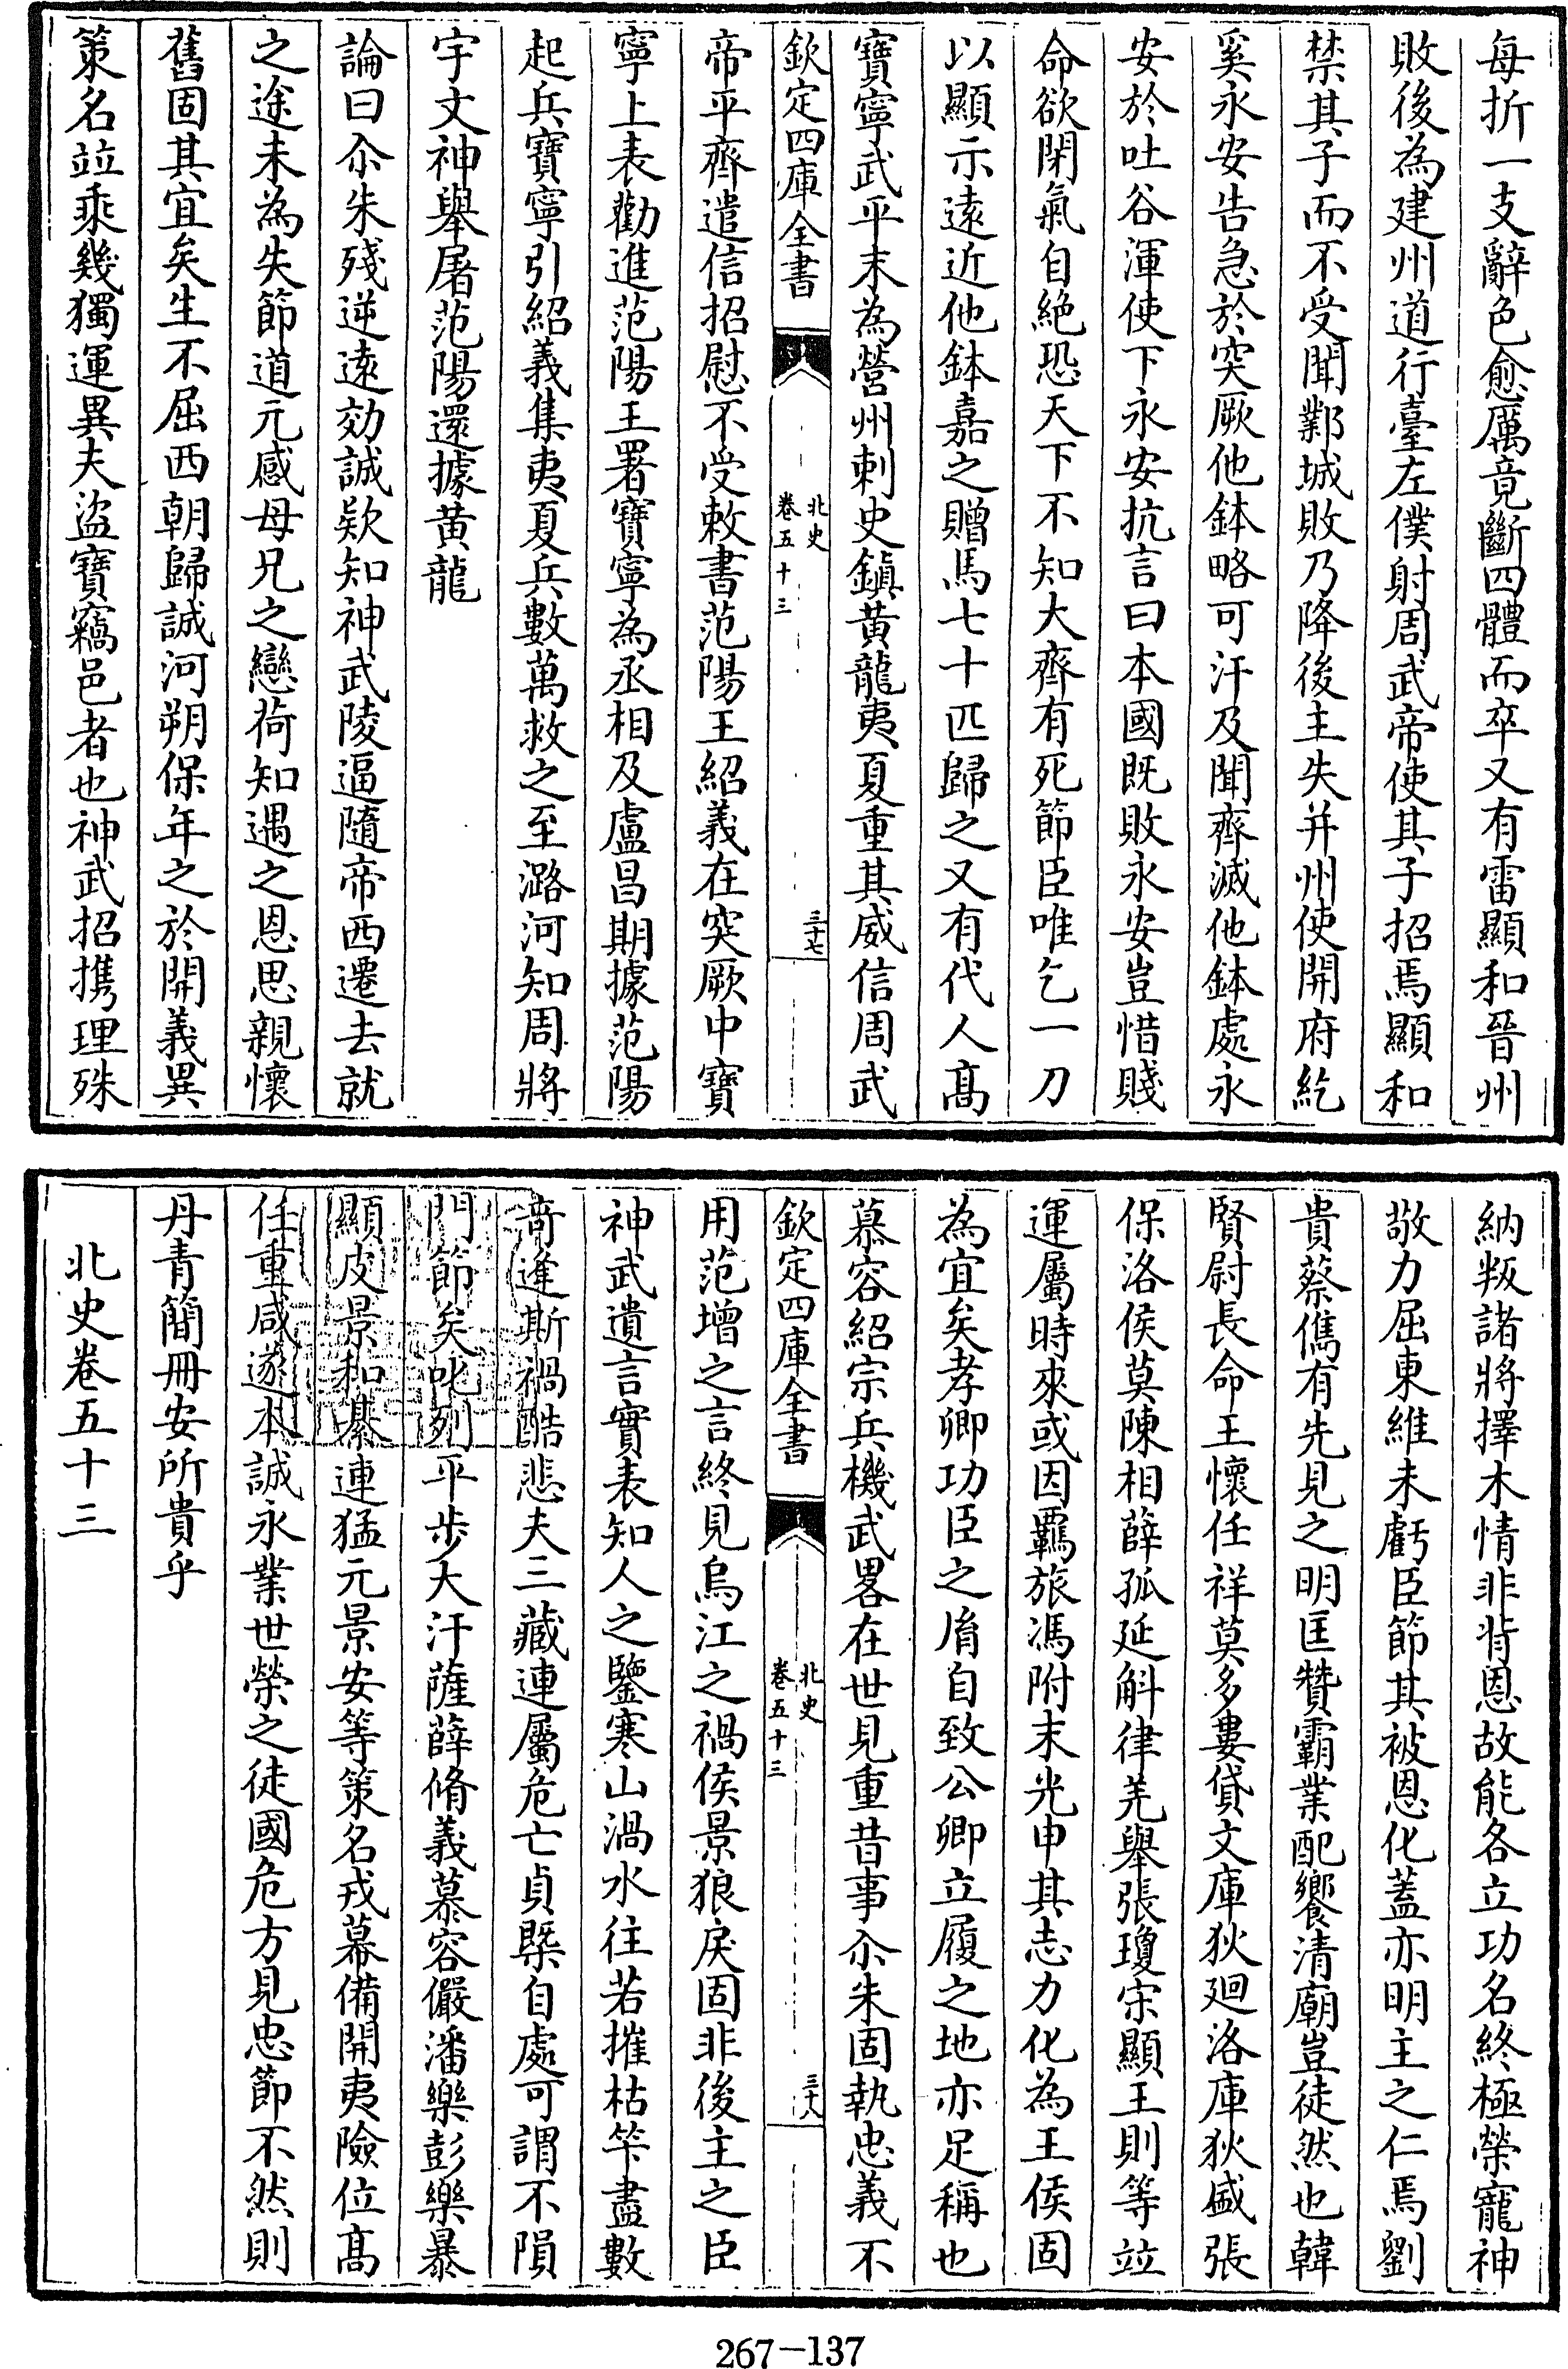 每折一支辭色愈厲竟斷四體而卒又有雷顯和晉州
敗後為建州道行臺左僕射周武帝使其子招焉顯和
禁其子而不受聞鄴城敗乃降後主失并州使開府紇
奚永安告急於突厥他鉢略可汗及聞齊滅他鉢處永
安於吐谷渾使下永安抗言曰本國既敗永安豈惜賤
命欲閉氣自絶恐天下不知大齊有死節臣唯乞一刀
以顯示逺近他鉢嘉之贈馬七十匹歸之又有代人髙
寶寧武平末為營州刺史鎮黄龍夷夏重其威信周武
欽定四庫全書
北史
卷五十三
三十七
帝平齊遣信招慰不受敕書范陽王紹義在突厥中寶
寧上表勸進范陽王署寶寧為丞相及盧昌期據范陽
起兵寶寧引紹義集夷夏兵數萬救之至潞河知周將
宇文神舉屠范陽還據黄龍
論曰尒朱殘逆逺効誠欵知神武陵逼隨帝西遷去就
之途未為失節道元感母兄之戀荷知遇之恩思親懷
舊固其宜矣生不屈西朝歸誠河朔保年之於開義異
策名竝乘幾獨運異夫盜寶竊邑者也神武招攜理殊
納叛諸將擇木情非背恩故能各立功名終極榮寵神
敬力屈東維未虧臣節其被恩化蓋亦明主之仁焉劉
貴蔡儁有先見之明匡贊霸業配饗清廟豈徒然也韓
賢尉長命王懷任祥莫多婁貸文庫狄廻洛庫狄盛張
保洛侯莫陳相薛孤延斛律羌舉張瓊宋顯王則等竝
運屬時來或因羈旅馮附末光申其志力化為王侯固
為宜矣孝卿功臣之㣧自致公卿立履之地亦足稱也
慕容紹宗兵機武畧在世見重昔事尒朱固執忠義不
欽定四庫全書
北史
卷五十三
三十八
用范增之言終見烏江之禍侯景狼戾固非後主之臣
神武遺言實表知人之鑒寒山渦水往若摧枯筭盡數
竒逢斯禍酷悲夫三藏連屬危亡貞槩自處可謂不隕
門節矣叱列平步大汗薩薛脩義慕容儼潘樂彭樂暴
顯皮景和綦連猛元景安等策名戎幕備開夷險位髙
任重咸遂本誠永業世榮之徒國危方見忠節不然則
丹青簡冊安所貴乎
北史卷五十三
267-137